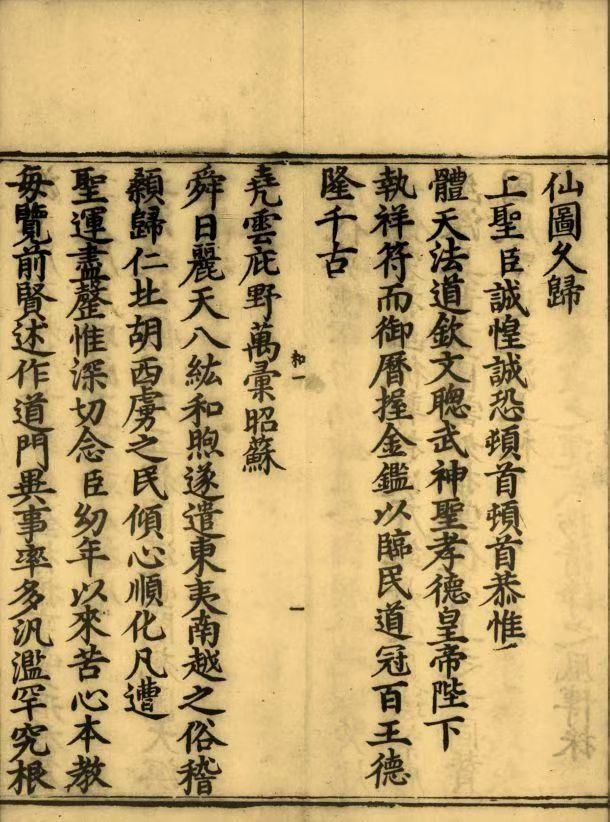 仙圖久歸
上聖臣誠惶誠恐頓首頓首恭惟
體天法道欽文聰武神聖孝德皇帝陛下
執祥符而御曆握金鑑以臨民道冠百王德
隆千古
和一
一
堯雲庇野萬彙昭蘇
舜日麗天八紘和煦遂遣東夷南越之俗稽
顙歸仁北胡西虜之民傾心順化凡遭
聖運盡蹔惟深切念臣幼年以來苦心本教
每覽前賢述作道門異事率多汎濫罕究根